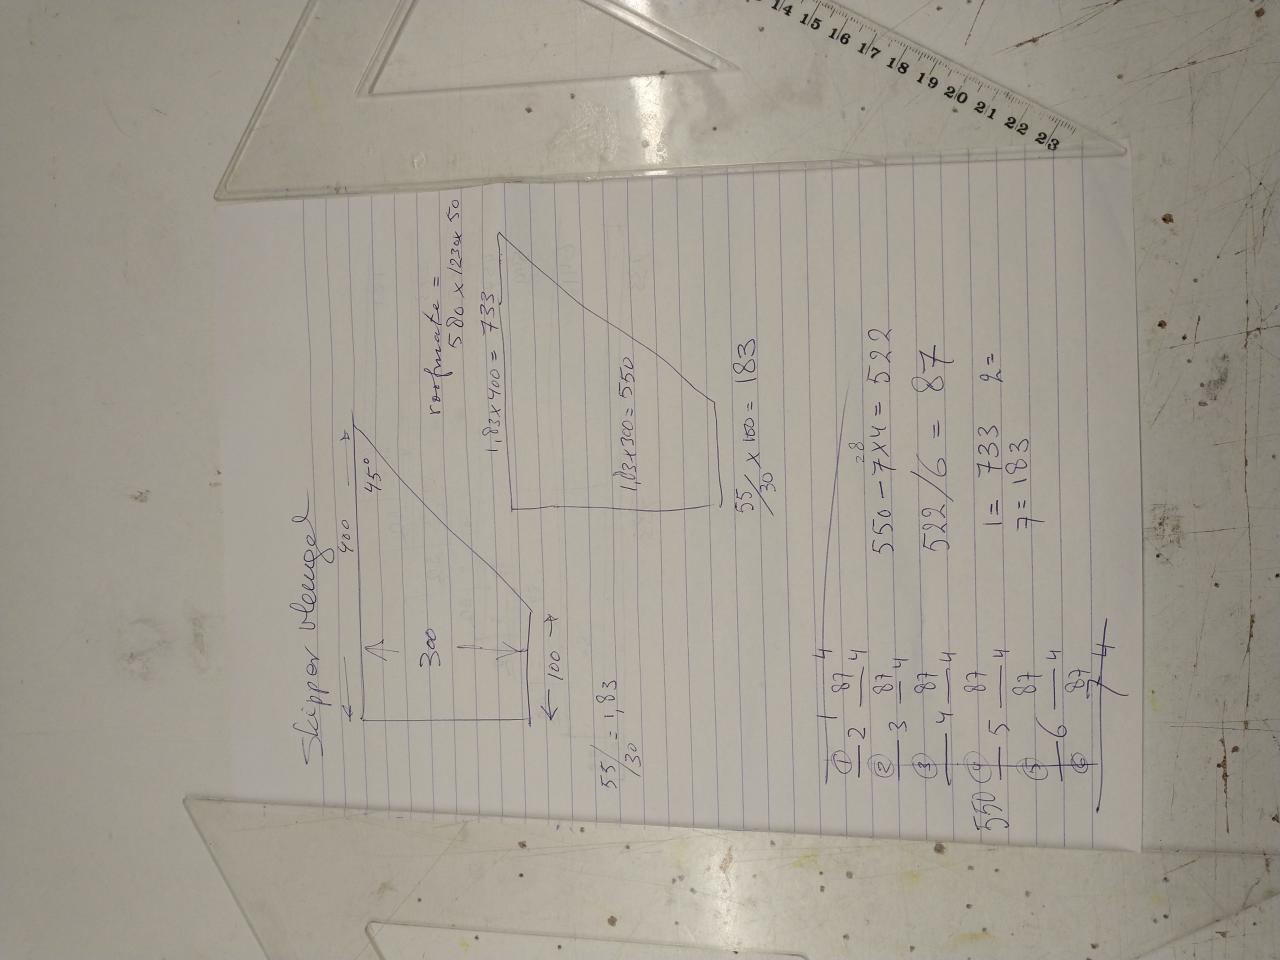 Skipper vleugel
400
45°
300
100
roofmate =
580 x 1230 x 50
1,83 x 400 = 733
1,83 x 300 = 550
55/30 = 1,83
55/30 x 100 = 183
1 4
① 87
2 4
② 87
3 4
③ 87
4 4
550 ④ 87
5 4
⑤ 87
6 4
⑥ 87
7 4
28
550 - 7 x 4 = 522
522/6 = 87
1 = 733 2 =
7 = 183
14 15 16 17 18 19 20 21 22 23